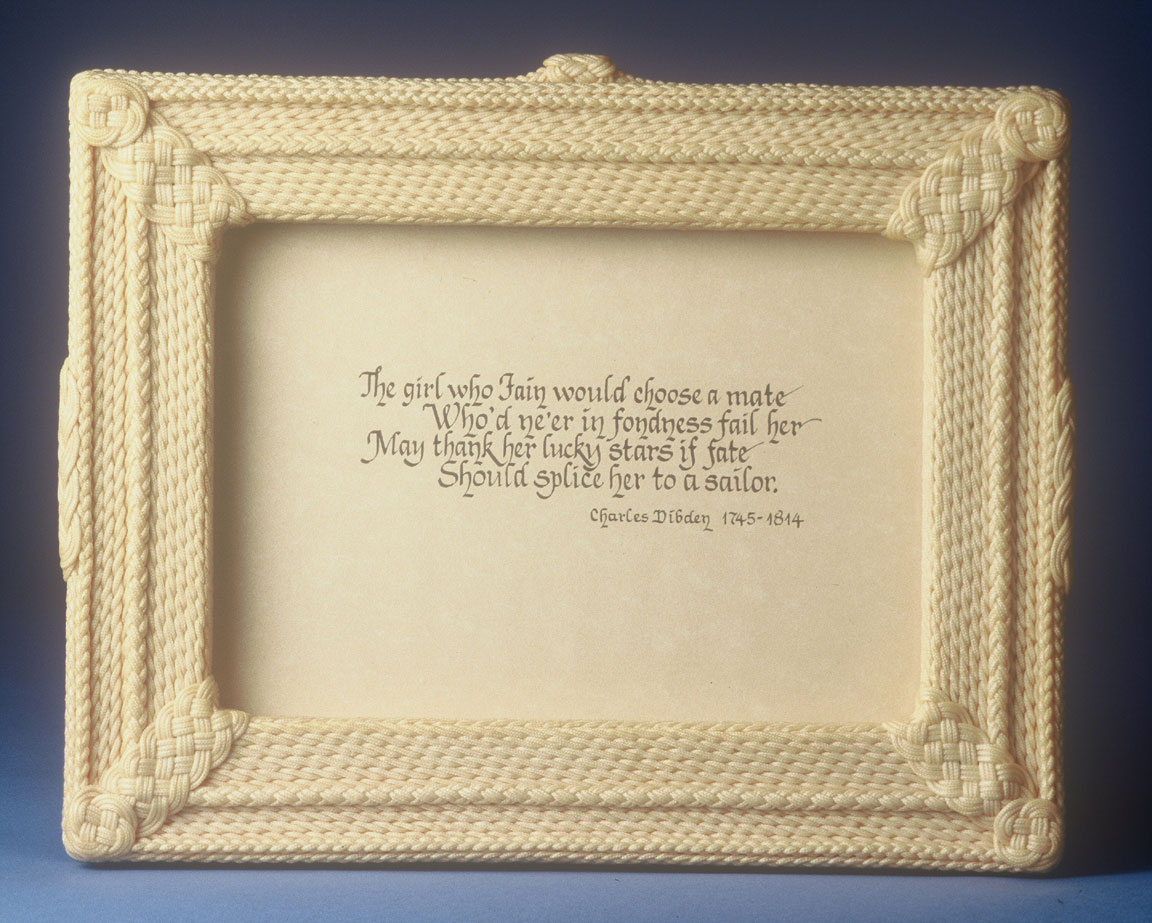 The girl who Fain would choose a mate
Who'd ne'er in fondness fail her
May thank her lucky stars if fate
Should splice her to a sailor.
Charles Dibden 1745-1814